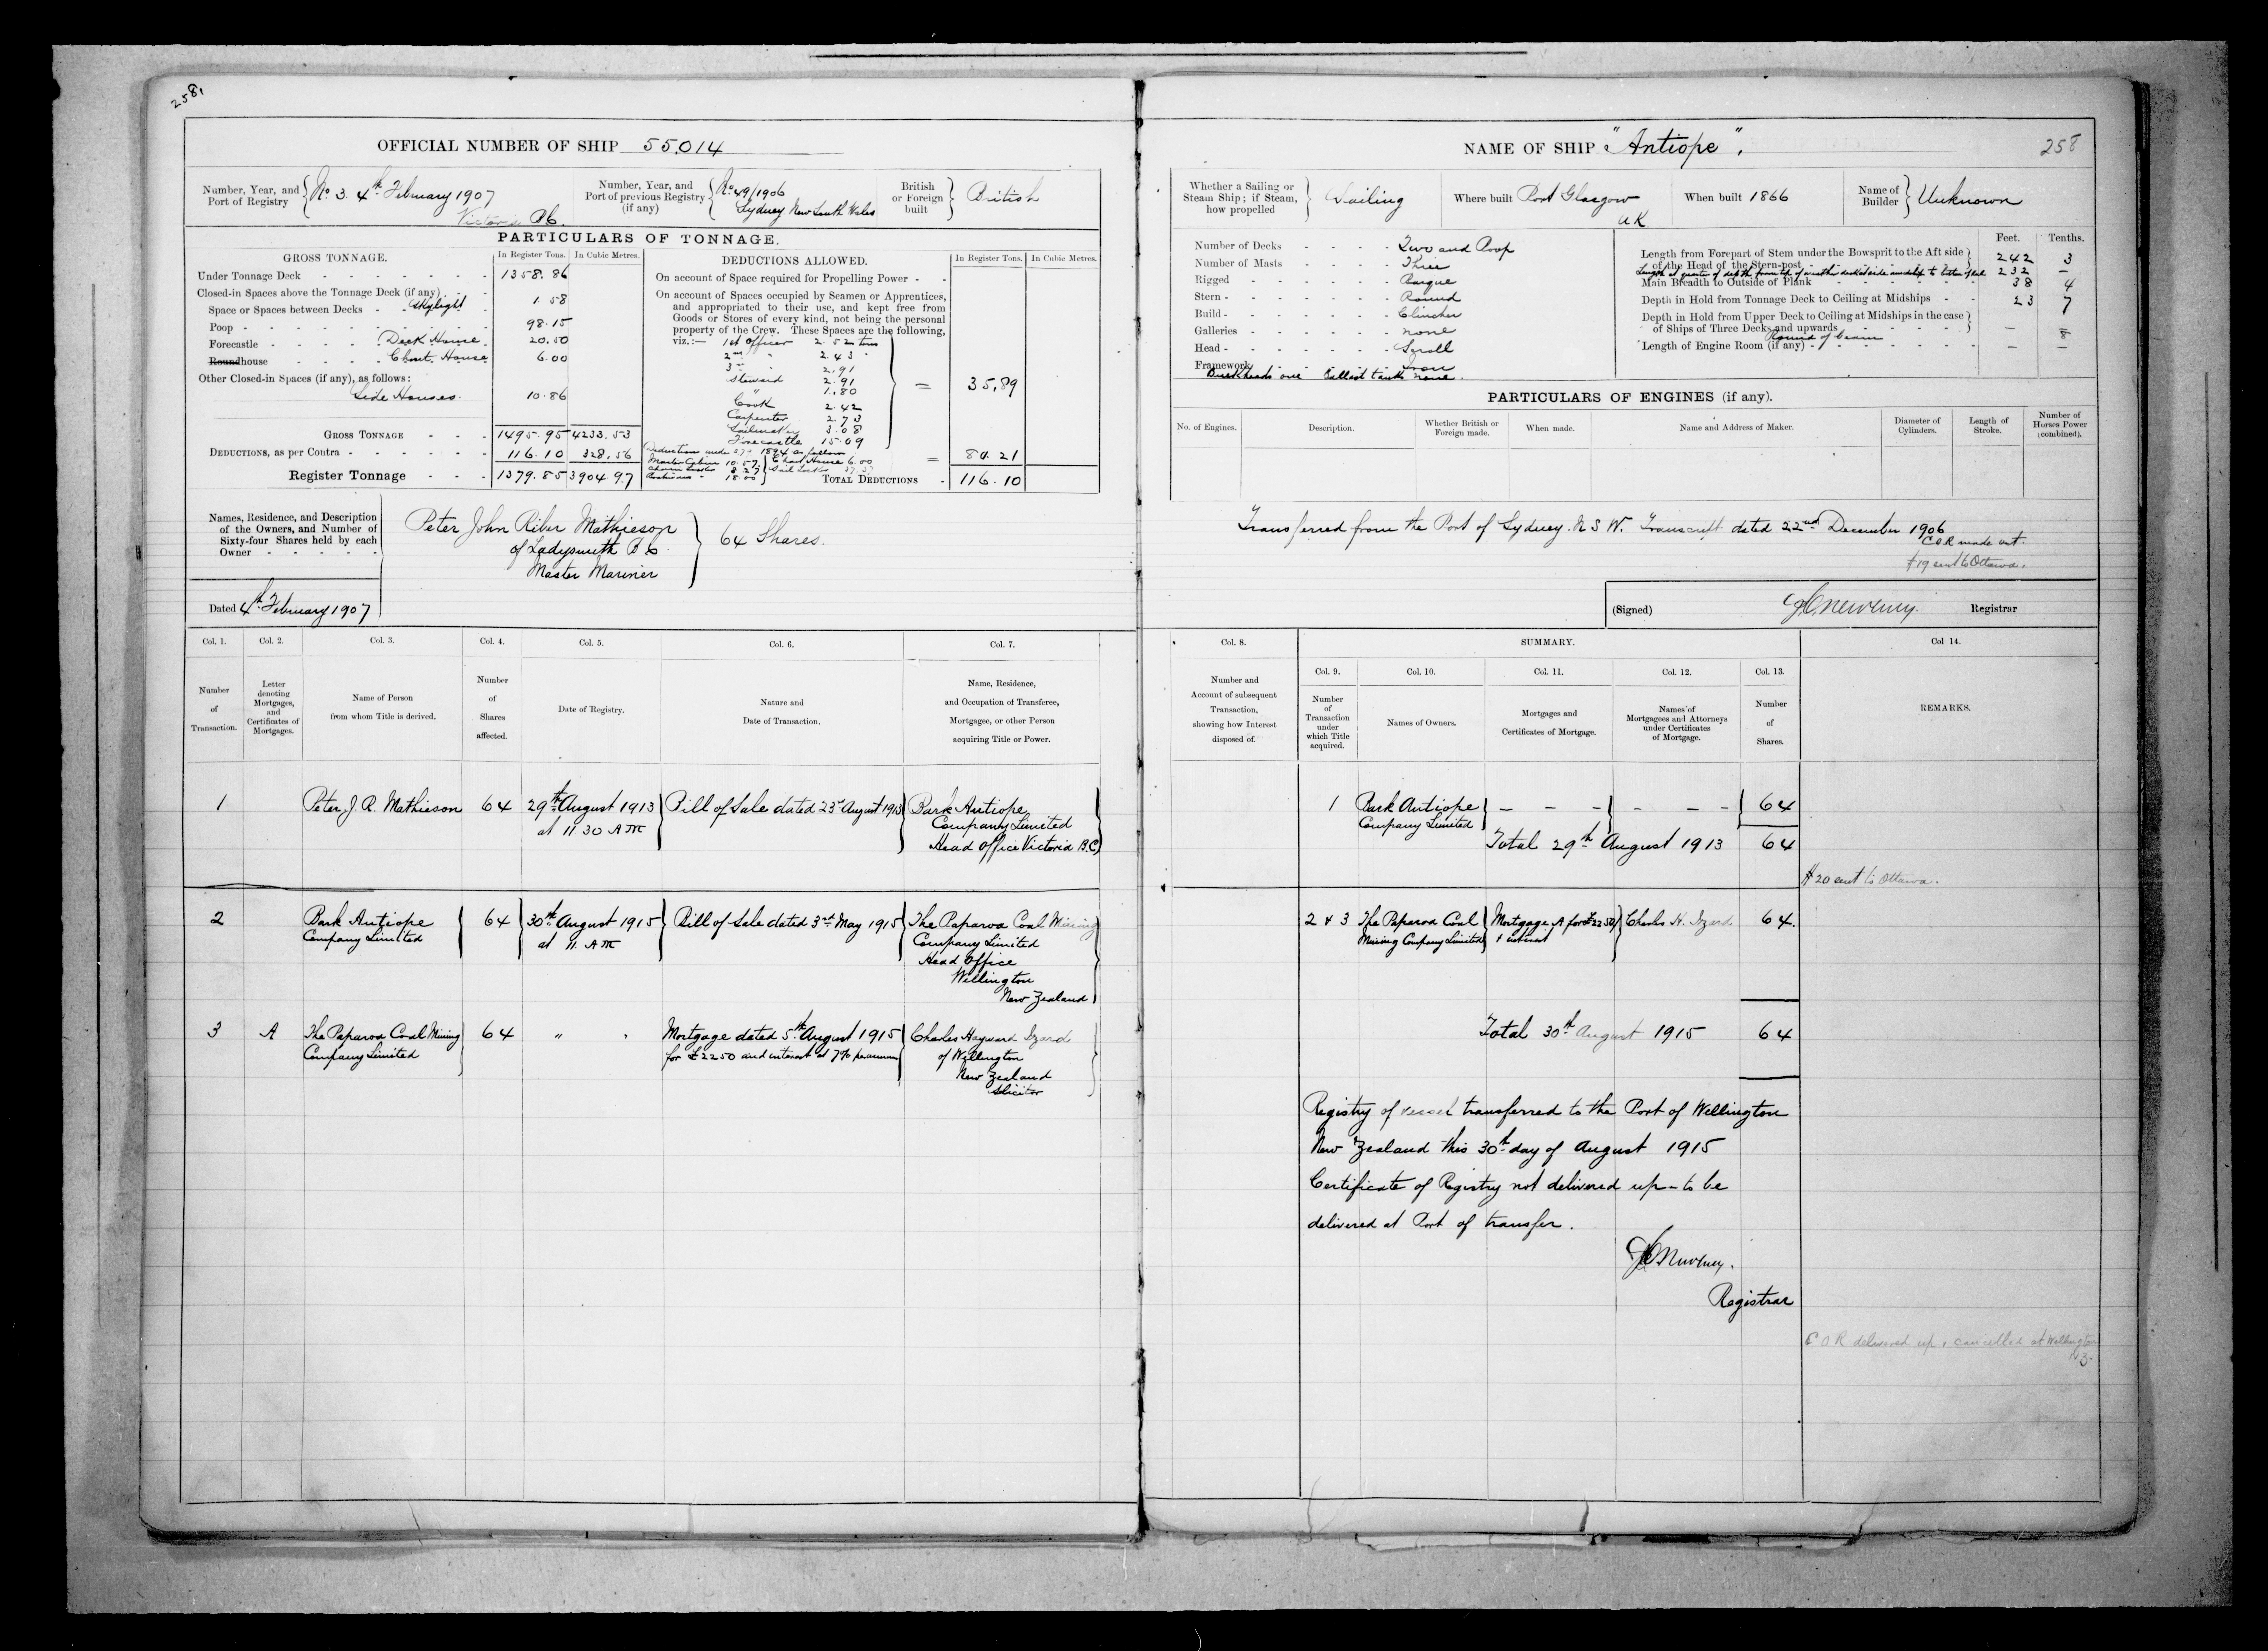 258,
OFFICIAL NUMBER OF SHIP 55,014
Number, Year, and Port of Registry
No. 3. 4th February 1907
Victoria B.C.
Number, Year, and Port of previous Registry (if any)
No 49/1906
Sydney New South Wales
British or Foreign built
British
PARTICULARS OF TONNAGE.
GROSS TONNAGE.
In Register Tons. In Cubic Metres.
Under Tonnage Deck - 1358.86
Closed-in Spaces above the Tonnage Deck (if any) -
Space or Spaces between Decks - Skylight 1.58
Poop - 98.15
Forecastle - Deck House 20.50
Roundhouse - Chart House 6.00
Other Closed-in Spaces (if any), as follows:
Side Houses. 10.86
GROSS TONNAGE - 1495.95 4233.53
DEDUCTIONS, as per Contra - 116.10 328.56
Register Tonnage - 1379.85 3904.97
DEDUCTIONS ALLOWED.
In Register Tons. In Cubic Metres.
On account of Space required for Propelling Power -
On account of Spaces occupied by Seamen or Apprentices,
and appropriated to their use, and kept free from
Goods or Stores of every kind, not being the personal
property of the Crew. These Spaces are the following,
viz.:— 1st Officer 2.52 tons
2nd " 2.43 "
3rd " 2.91
Steward 2.91
" 1.80
Cook 2.42
Carpenter 2.73
Sailmaker 3.08
Forecastle 15.09
= 35.89
Deductions under 1894 as follows
Master Cabin 10.57 Chart House 6.00
8.27 Sail Locker
18.00
= 80.21
TOTAL DEDUCTIONS - 116.10
Names, Residence, and Description
of the Owners, and Number of
Sixty-four Shares held by each
Owner -
Peter John Riber Mathieson
of Ladysmith B C
Master Mariner
64 Shares.
Dated 4th February 1907
Col. 1. Col. 2. Col. 3. Col. 4. Col. 5. Col. 6. Col. 7.
Number of Transaction.
Letter denoting Mortgages, and Certificates of Mortgages.
Name of Person from whom Title is derived.
Number of Shares affected.
Date of Registry.
Nature and Date of Transaction.
Name, Residence, and Occupation of Transferee, Mortgagee, or other Person acquiring Title or Power.
1 Peter J. R. Mathieson 64 29th August 1913 Bill of Sale dated 23rd August 1913 Bark Antiope
at 11 30 AM Company Limited
Head Office Victoria B.C
2 Bark Antiope 64 30th August 1915 Bill of Sale dated 3rd May 1915 The Paparoa Coal Mining
Company Limited at 11. AM Company Limited
Head Office
Wellington
New Zealand
3 A The Paparoa Coal Mining 64 " " Mortgage dated 5th August 1915 Charles Hayward Izard
Company Limited for £2250 and interest at 7% per annum of Wellington
New Zealand
Solicitor
NAME OF SHIP "Antiope".
258
Whether a Sailing or Steam Ship; if Steam, how propelled
Sailing
Where built Port Glasgow
U K
When built 1866
Name of Builder
Unknown
Number of Decks - Two and Poop
Number of Masts - Three
Rigged - Barque
Stern - Round
Build - Clincher
Galleries - none
Head - Scroll
Framework Iron
Bulkheads one Ballast tanks none.
Feet. Tenths.
Length from Forepart of Stem under the Bowsprit to the Aft side
of the Head of the Stern-post - 242 3
Length at quarter of depth from top of weather deck at side amidship to bottom of keel 232 —
Main Breadth to Outside of Plank - 38 4
Depth in Hold from Tonnage Deck to Ceiling at Midships - 23 7
Depth in Hold from Upper Deck to Ceiling at Midships in the case
of Ships of Three Decks and upwards - — —
Round of beam 8
Length of Engine Room (if any) - — —
PARTICULARS OF ENGINES (if any).
No. of Engines.
Description.
Whether British or Foreign made.
When made.
Name and Address of Maker.
Diameter of Cylinders.
Length of Stroke.
Number of Horses Power (combined).
Transferred from the Port of Sydney. N S W. Transcript dated 22nd December 1906
C O R made out.
#19 sent to Ottawa.
(Signed) Registrar
Col. 8.
SUMMARY.
Col 14.
Col. 9. Col. 10. Col. 11. Col. 12. Col. 13.
Number and Account of subsequent Transaction, showing how Interest disposed of.
Number of Transaction under which Title acquired.
Names of Owners.
Mortgages and Certificates of Mortgage.
Names of Mortgagees and Attorneys under Certificates of Mortgage.
Number of Shares.
REMARKS.
1 Bark Antiope — — — — — — 64
Company Limited
Total 29th August 1913 64
# 20 sent to Ottawa.
2 & 3 The Paparoa Coal Mortgage A for £2250 Charles H. Izard. 64.
Mining Company Limited & interest
Total 30th August 1915 64
Registry of vessel transferred to the Port of Wellington
New Zealand this 30th day of August 1915
Certificate of Registry not delivered up - to be
delivered at Port of transfer.
Registrar
C O R delivered up & cancelled at Wellington